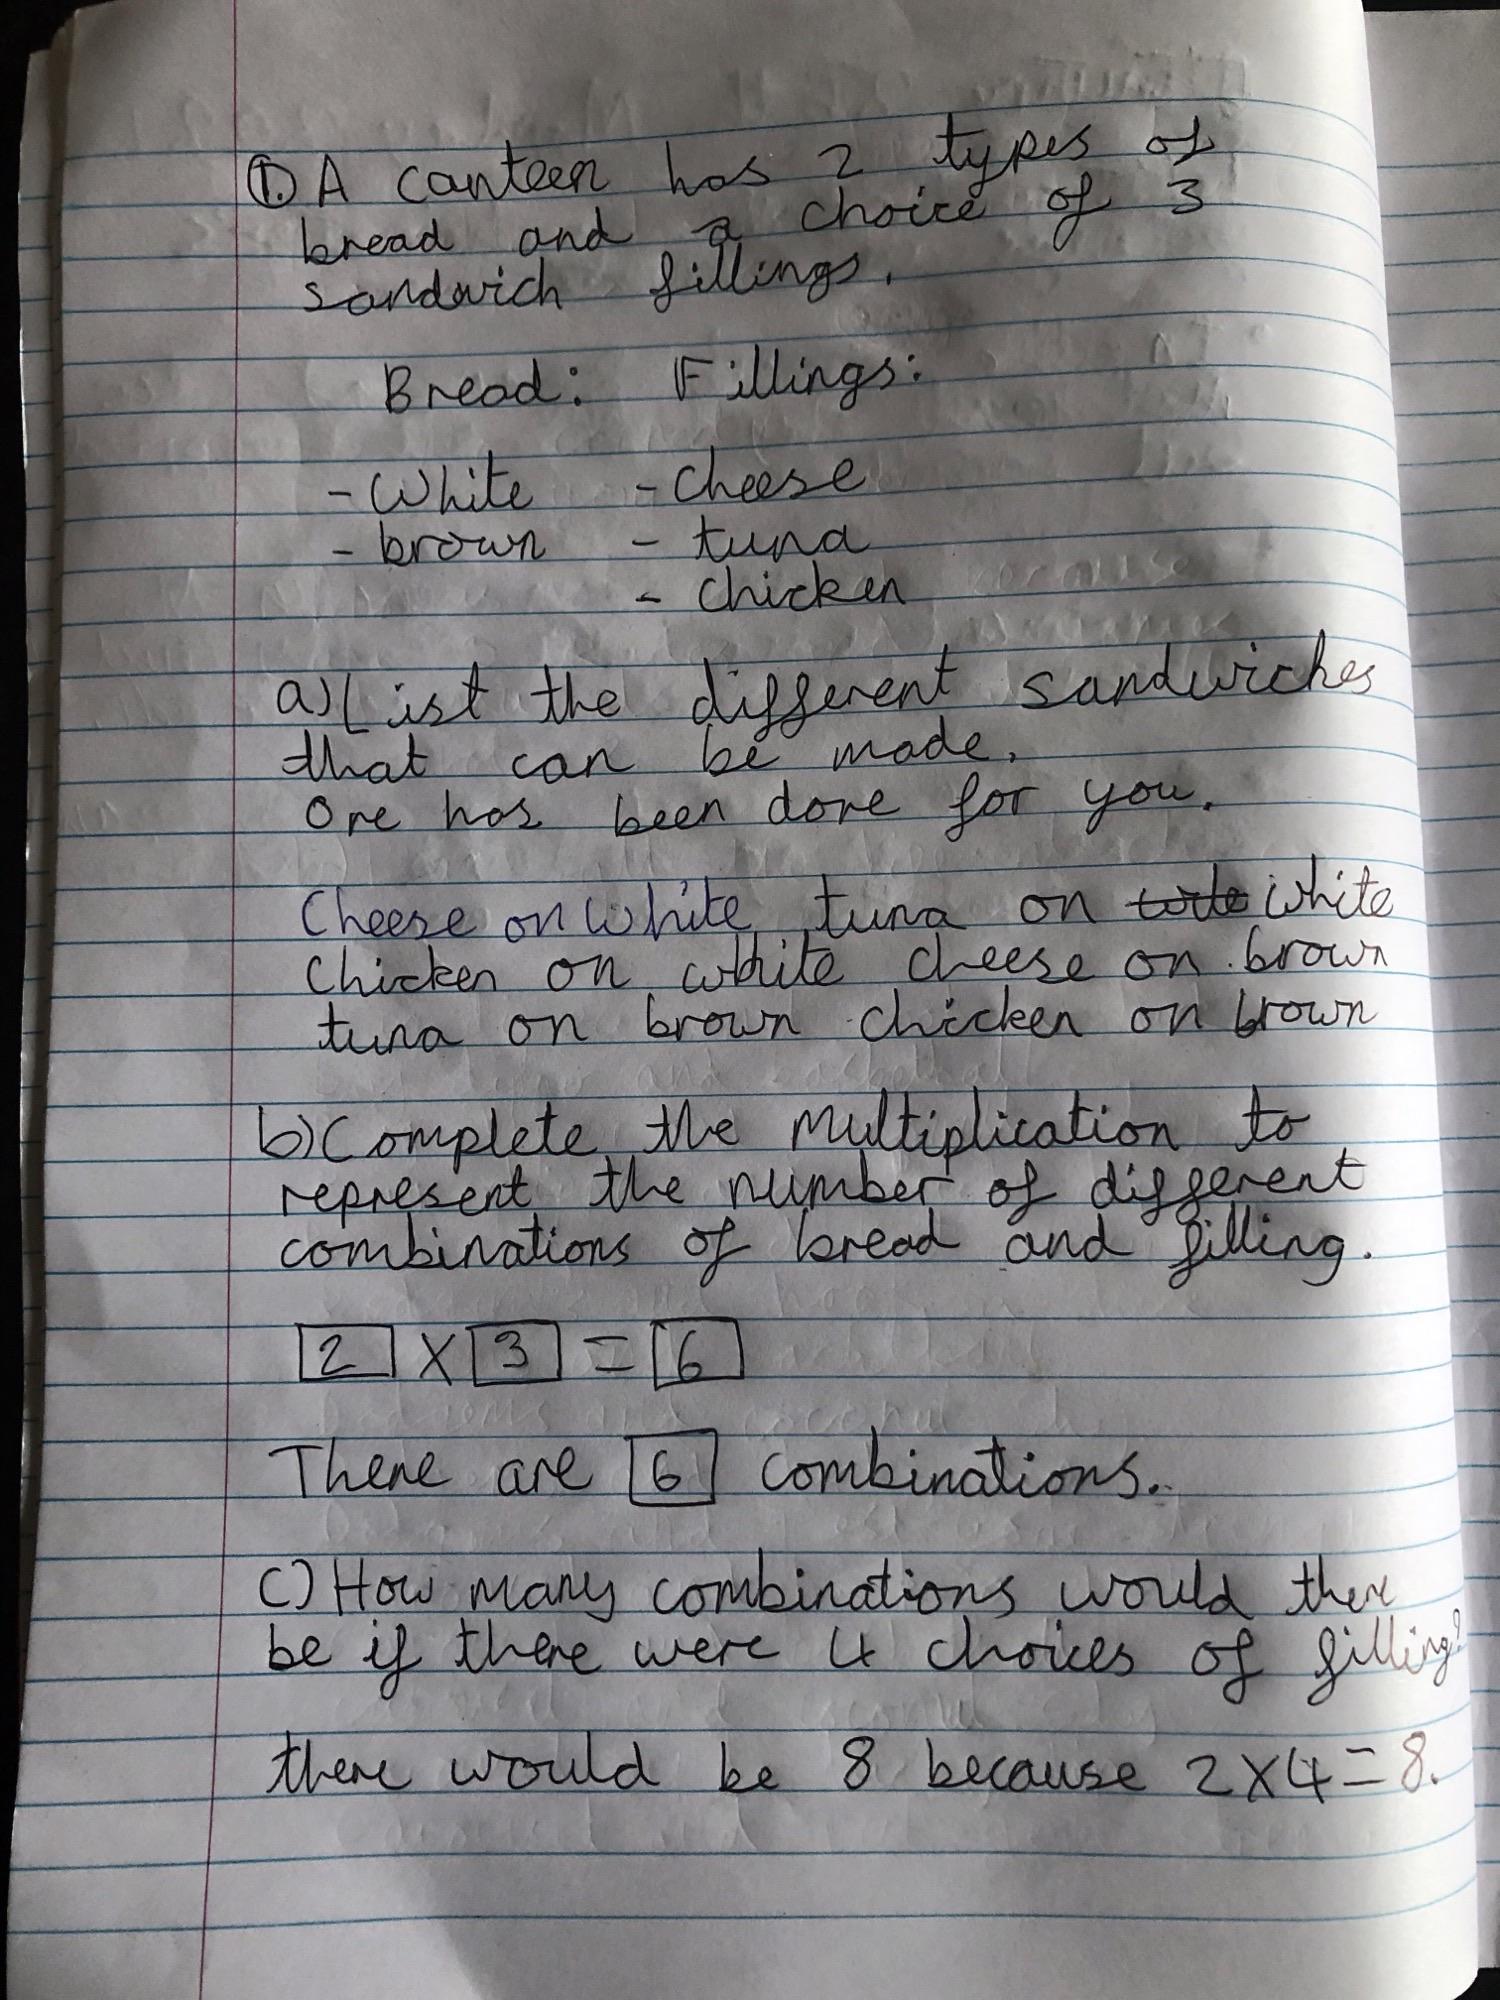 1. A canteen has 2 types of
bread and a choice of 3
sandwich fillings.
Bread: Fillings:
- White - Cheese
- brown - tuna
- Chicken
a) List the different sandwiches
that can be made.
One has been done for you.
Cheese on White tuna on white
Chicken on white cheese on brown
tuna on brown chicken on brown
b) Complete the multiplication to
represent the number of different
combinations of bread and filling.
2 X 3 = 6
There are 6 combinations.
C) How many combinations would there
be if there were 4 choices of filling?
there would be 8 because 2X4=8.